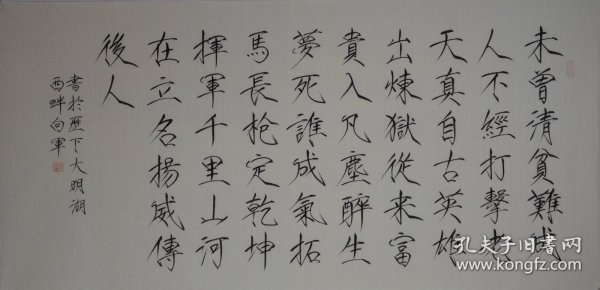 未曾清貧難成
人不經打擊老
天真自古英雄
出煉獄從來富
貴入凡塵醉生
夢死誰成氣拓
馬長槍定乾坤
揮軍千里山河
在立名揚威傳
後人
書於歷下大明湖
西畔向軍
孔夫子旧书网
www.kongfz.com